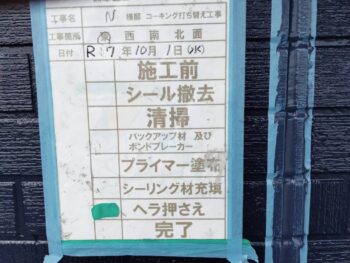 工事名 N 様邸 コーキング打ち替え工事
工事箇所 東 西 南 北 面
日付 R 7 年 10 月 1 日 (水)
施工前
シール撤去
清掃
バックアップ材 及び
ボンドブレーカー
プライマー塗布
シーリング材充填
ヘラ押さえ
完了